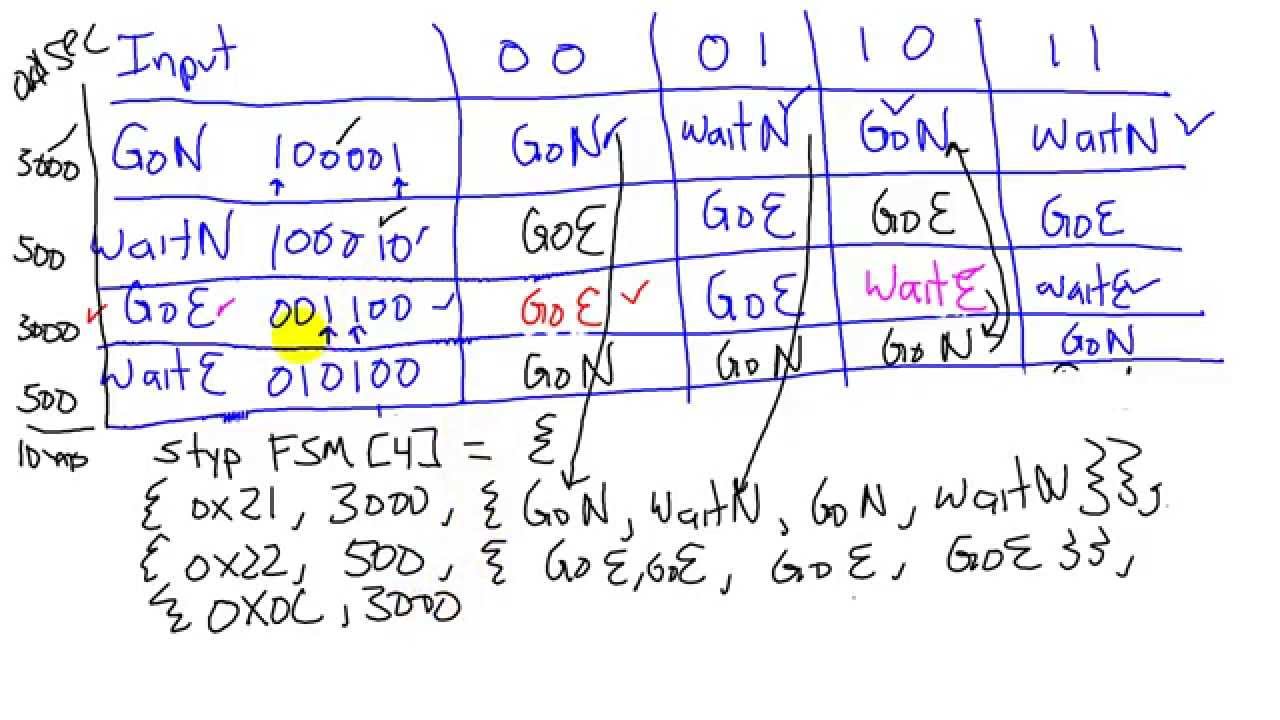 Input 00 01 10 11
3000 GoN 100001 GoN waitN GoN waitN
500 waitN 100010 GoE GoE GoE GoE
3000 GoE 001100 GoE GoE waitE waitE
500 waitE 010100 GoN GoN GoN GoN
10 ms
styp FSM[4] = {
{ 0x21, 3000, { GoN, waitN, GoN, waitN }},
{ 0x22, 500, { GoE, GoE, GoE, GoE }},
{ 0x0C, 3000